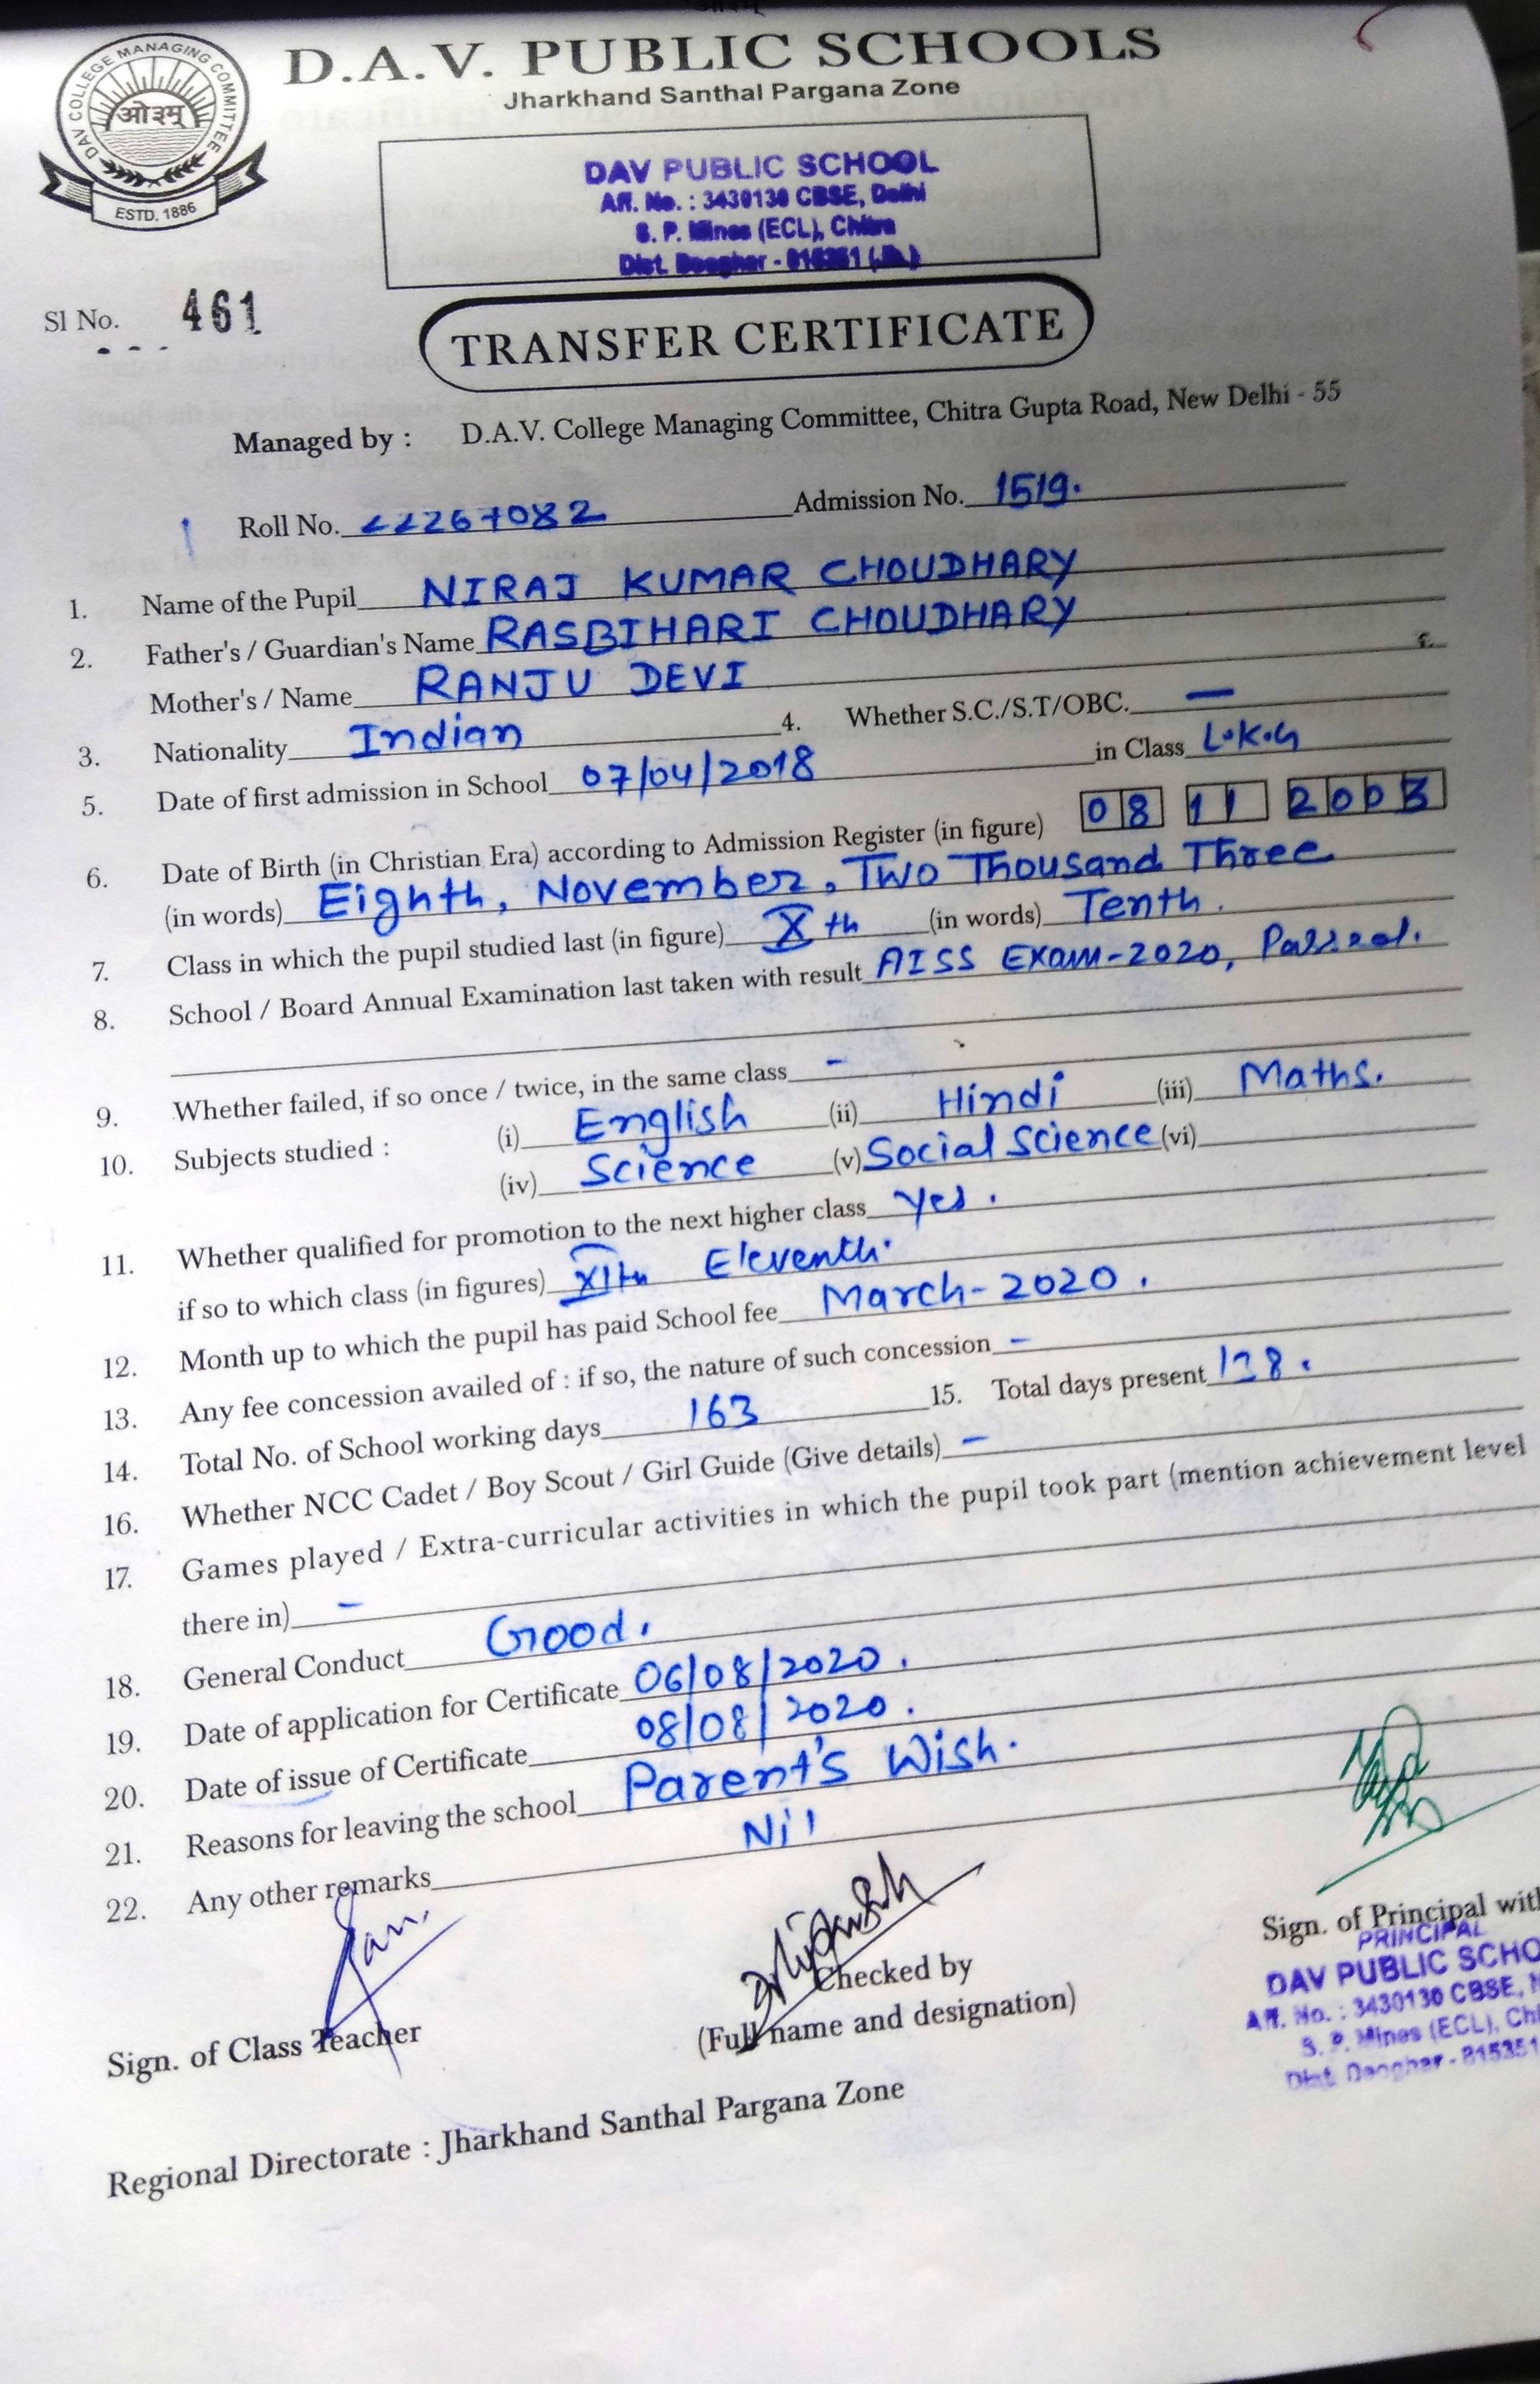 D.A.V. PUBLIC SCHOOLS
Jharkhand Santhal Pargana Zone
DAV COLLEGE MANAGING COMMITTEE
ओ३म्
ESTD. 1886
DAV PUBLIC SCHOOL
Aff. No. : 3430130 CBSE, Delhi
S. P. Mines (ECL), Chitra
Dist. Deoghar - 815351
Sl No. 461
TRANSFER CERTIFICATE
Managed by : D.A.V. College Managing Committee, Chitra Gupta Road, New Delhi - 55
Roll No. 22267082 Admission No. 1519.
1. Name of the Pupil NIRAJ KUMAR CHOUDHARY
2. Father's / Guardian's Name RASBIHARI CHOUDHARY
Mother's / Name RANJU DEVI
3. Nationality Indian 4. Whether S.C./S.T/OBC. —
5. Date of first admission in School 07/04/2018 in Class L.K.G
6. Date of Birth (in Christian Era) according to Admission Register (in figure) 08 11 2003
(in words) Eighth, November, Two Thousand Three
7. Class in which the pupil studied last (in figure) Xth (in words) Tenth.
8. School / Board Annual Examination last taken with result AISS Exam-2020, Passed.
9. Whether failed, if so once / twice, in the same class -
10. Subjects studied : (i) English (ii) Hindi (iii) Maths.
(iv) Science (v) Social Science (vi)
11. Whether qualified for promotion to the next higher class Yes.
if so to which class (in figures) XIth Eleventh.
12. Month up to which the pupil has paid School fee March-2020.
13. Any fee concession availed of : if so, the nature of such concession -
14. Total No. of School working days 163 15. Total days present 128.
16. Whether NCC Cadet / Boy Scout / Girl Guide (Give details) -
17. Games played / Extra-curricular activities in which the pupil took part (mention achievement level
there in) -
18. General Conduct Good.
19. Date of application for Certificate 06/08/2020.
20. Date of issue of Certificate 08/08/2020.
21. Reasons for leaving the school Parent's Wish.
22. Any other remarks Nil
Sign. of Class Teacher
Checked by
(Full name and designation)
Sign. of Principal with
PRINCIPAL
DAV PUBLIC SCHO
Aff. No. : 3430130 CBSE, N
S. P. Mines (ECL), Chi
Dist. Deoghar - 815351
Regional Directorate : Jharkhand Santhal Pargana Zone